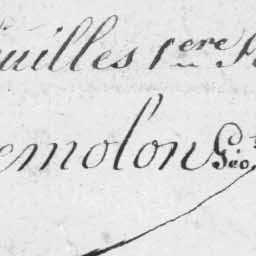 euilles 1ere Se
emolon Géo.